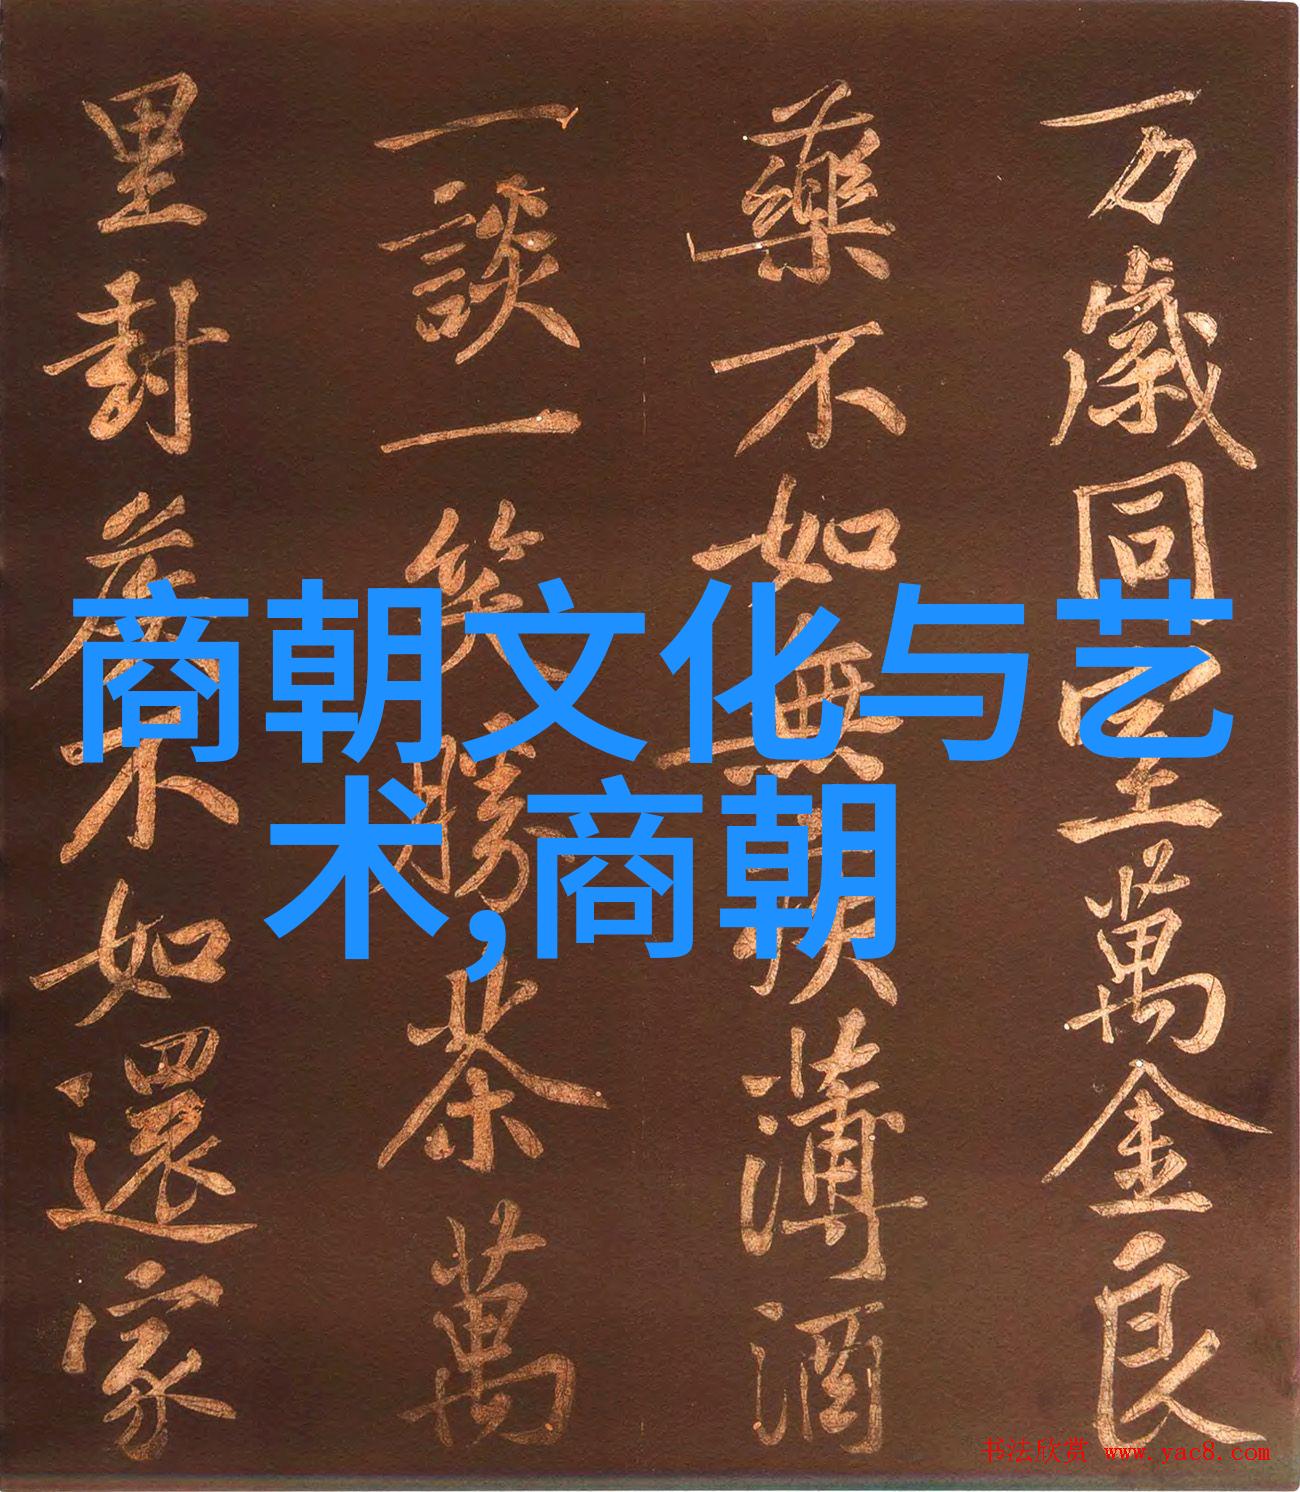 万歲同室萬金良
藥不如無疾薄酒
一談一笑勝茶萬
里封侯不如還家
商朝文化与艺
术,商朝
书法欣赏 www.yac8.com